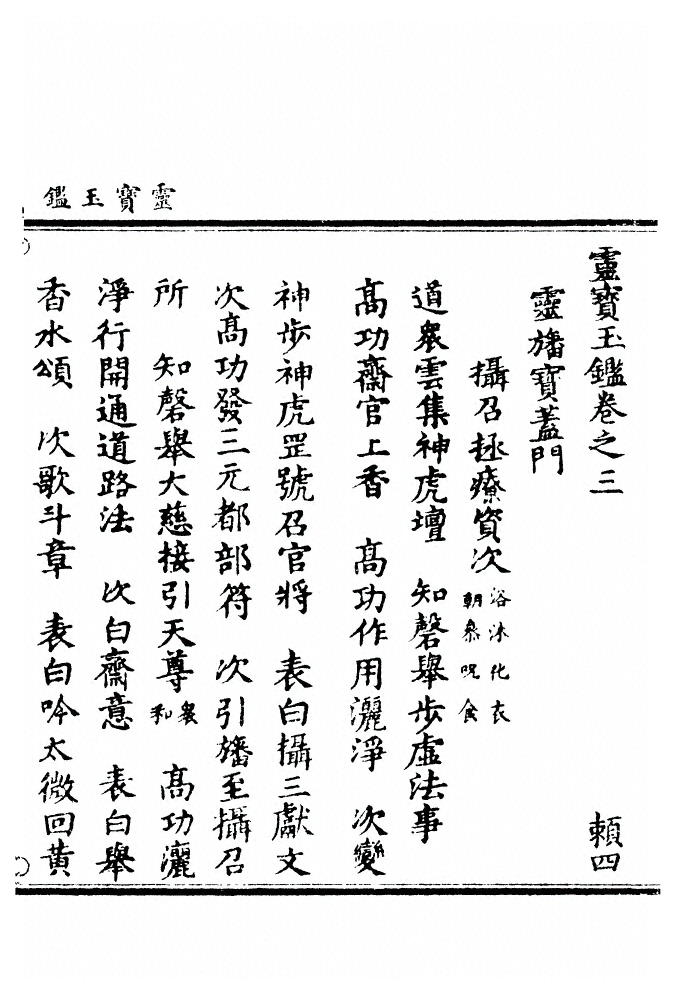 靈寶玉鑑
靈寶玉鑑卷之三　賴四
靈旛寶蓋門
攝召拯療資次 浴沐化衣 朝叅呪食
道衆雲集神虎壇　知磬舉步虛法事
高功齋官上香　高功作用灑淨　次變
神步神虎罡號召官將　表白攝三獻文
次高功發三元都部符　次引旛至攝召
所　知磬舉大慈接引天尊 衆和　高功灑
淨行開通道路法　次白齋意　表白舉
香水頌　次歌斗章　表白吟太微回黃